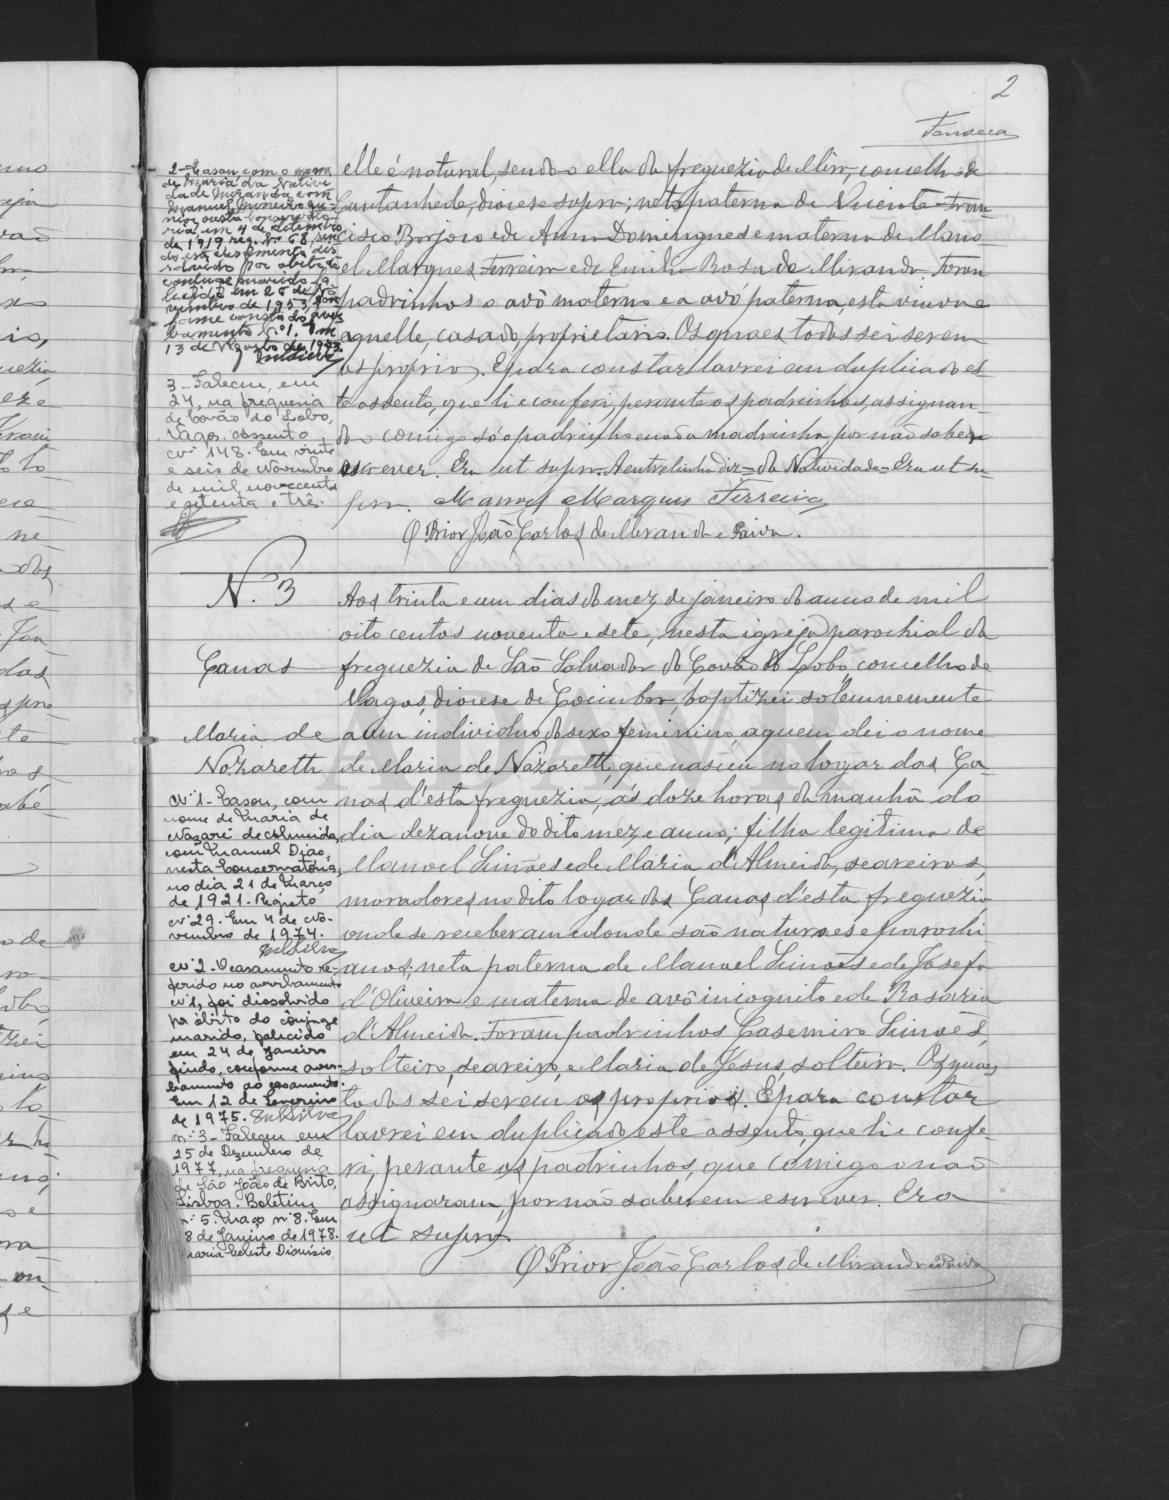 2
Fonseca
2-Casou com o nome
de Maria da Nativi
dade Miranda com
Manuel
nesta Conservató-
ria em 4 de Setembro
de 1919 reg. Nº 68 sen
do este casamento dis
solvido por óbito do
conjuge marido fa-
lecido em 26 de No
vembro de 1953, con
forme consta do aver
bamento nº 1. Em
13 de Agosto de 1973.
3-Faleceu, em
24, na freguesia
de Covão do Lobo,
Vagos. Assento
nº 148. Em vinte
e seis de Novembro
de mil novecentos
e setenta e três.
elle é natural, sendo o ella da freguezia de Mira, concelho de
Cantanhede, diocese supra; neta paterna de Vicente Fran-
cisco Borjoco e de Anna Domingues e materna de Mano-
el Marques Ferreira e de Emilia Rosa de Miranda. Foram
padrinhos o avô materno e a avó paterna, esta viuva e
aquelle, casado, proprietario. Os quaes todos sei serem
os proprios. E para constar lavrei em duplicado es-
te assento, que li e conferi, perante os padrinhos, assignan-
do comigo só o padrinho e não a madrinha por não saber
escrever. Era ut supra. A entrelinha diz = da Natividade = Era ut su-
pra. Manoel Marques Ferreira
O Prior João Carlos de Miranda e Paiva.
N.º 3
Canas
Maria de
Nazareth
Aos trinta e um dias do mez de janeiro do anno de mil
oito centos noventa e sete, nesta igreja parochial da
freguezia de São Salvador do Covão do Lobo, concelho de
Vagos, diocese de Coimbra, baptizei solemnemente
a um individuo do sexo feminino, a quem dei o nome
de Maria de Nazareth, que nasceu no logar das Ca-
nas d'esta freguezia, ás doze horas da manhã do
dia dezanove do dito mez e anno; filha legitima de
Manoel Simões e de Maria d'Almeida, seareiros,
moradores no dito logar das Canas d'esta freguezia
onde se receberam e donde são naturaes e parochi-
anos; neta paterna de Manoel Simões e de Josefa
d'Oliveira e materna de avô incognito e de Rosaria
d'Almeida. Foram padrinhos Casemiro Simões,
solteiro, seareiro, e Maria de Jesus, solteira. Os quaes
todos sei serem os proprios. E para constar
lavrei em duplicado este assento, que li e confe-
ri, perante os padrinhos, que comigo não
assignaram, por não saberem escrever. Era
ut supra.
O Prior João Carlos de Miranda e Paiva
Nº 1-Casou, com
nome de Maria de
Nazaré de Almeida,
com Manuel Dias,
nesta Conservatória,
no dia 21 de Março
de 1921. Registo
nº 29. Em 4 de No-
vembro de 1974.
Nº 2-O casamento re-
ferido no averbamento
nº 1, foi dissolvido
por óbito do cônjuge
marido, falecido
em 24 de Janeiro
findo, conforme aver-
bamento ao casamento.
Em 12 de Fevereiro
de 1975.
nº 3-Faleceu em
25 de Dezembro de
1977, na freguesia
de São João de Brito,
Lisboa. Boletim
nº 5. Maço nº 8. Em
8 de Janeiro de 1978.
Maria Celeste Dionísio